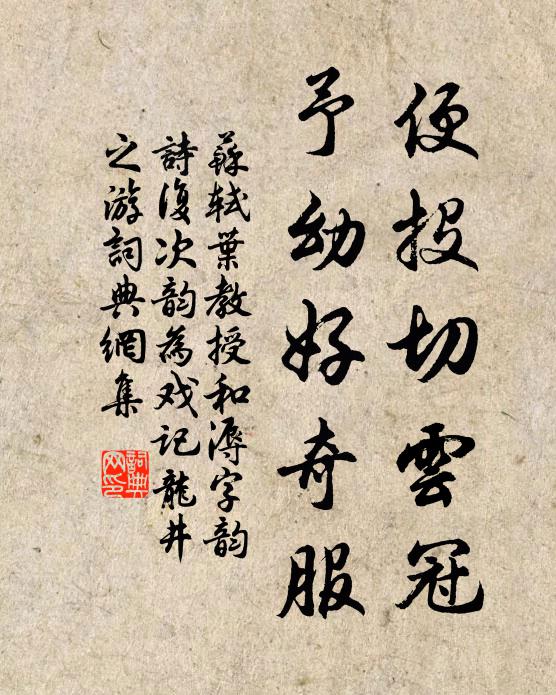 便投切雲冠
予幼好奇服
蘇軾葉教授和溽字韵
詩復次韵為戏記龍井
之游詞典網集
詞典
网印